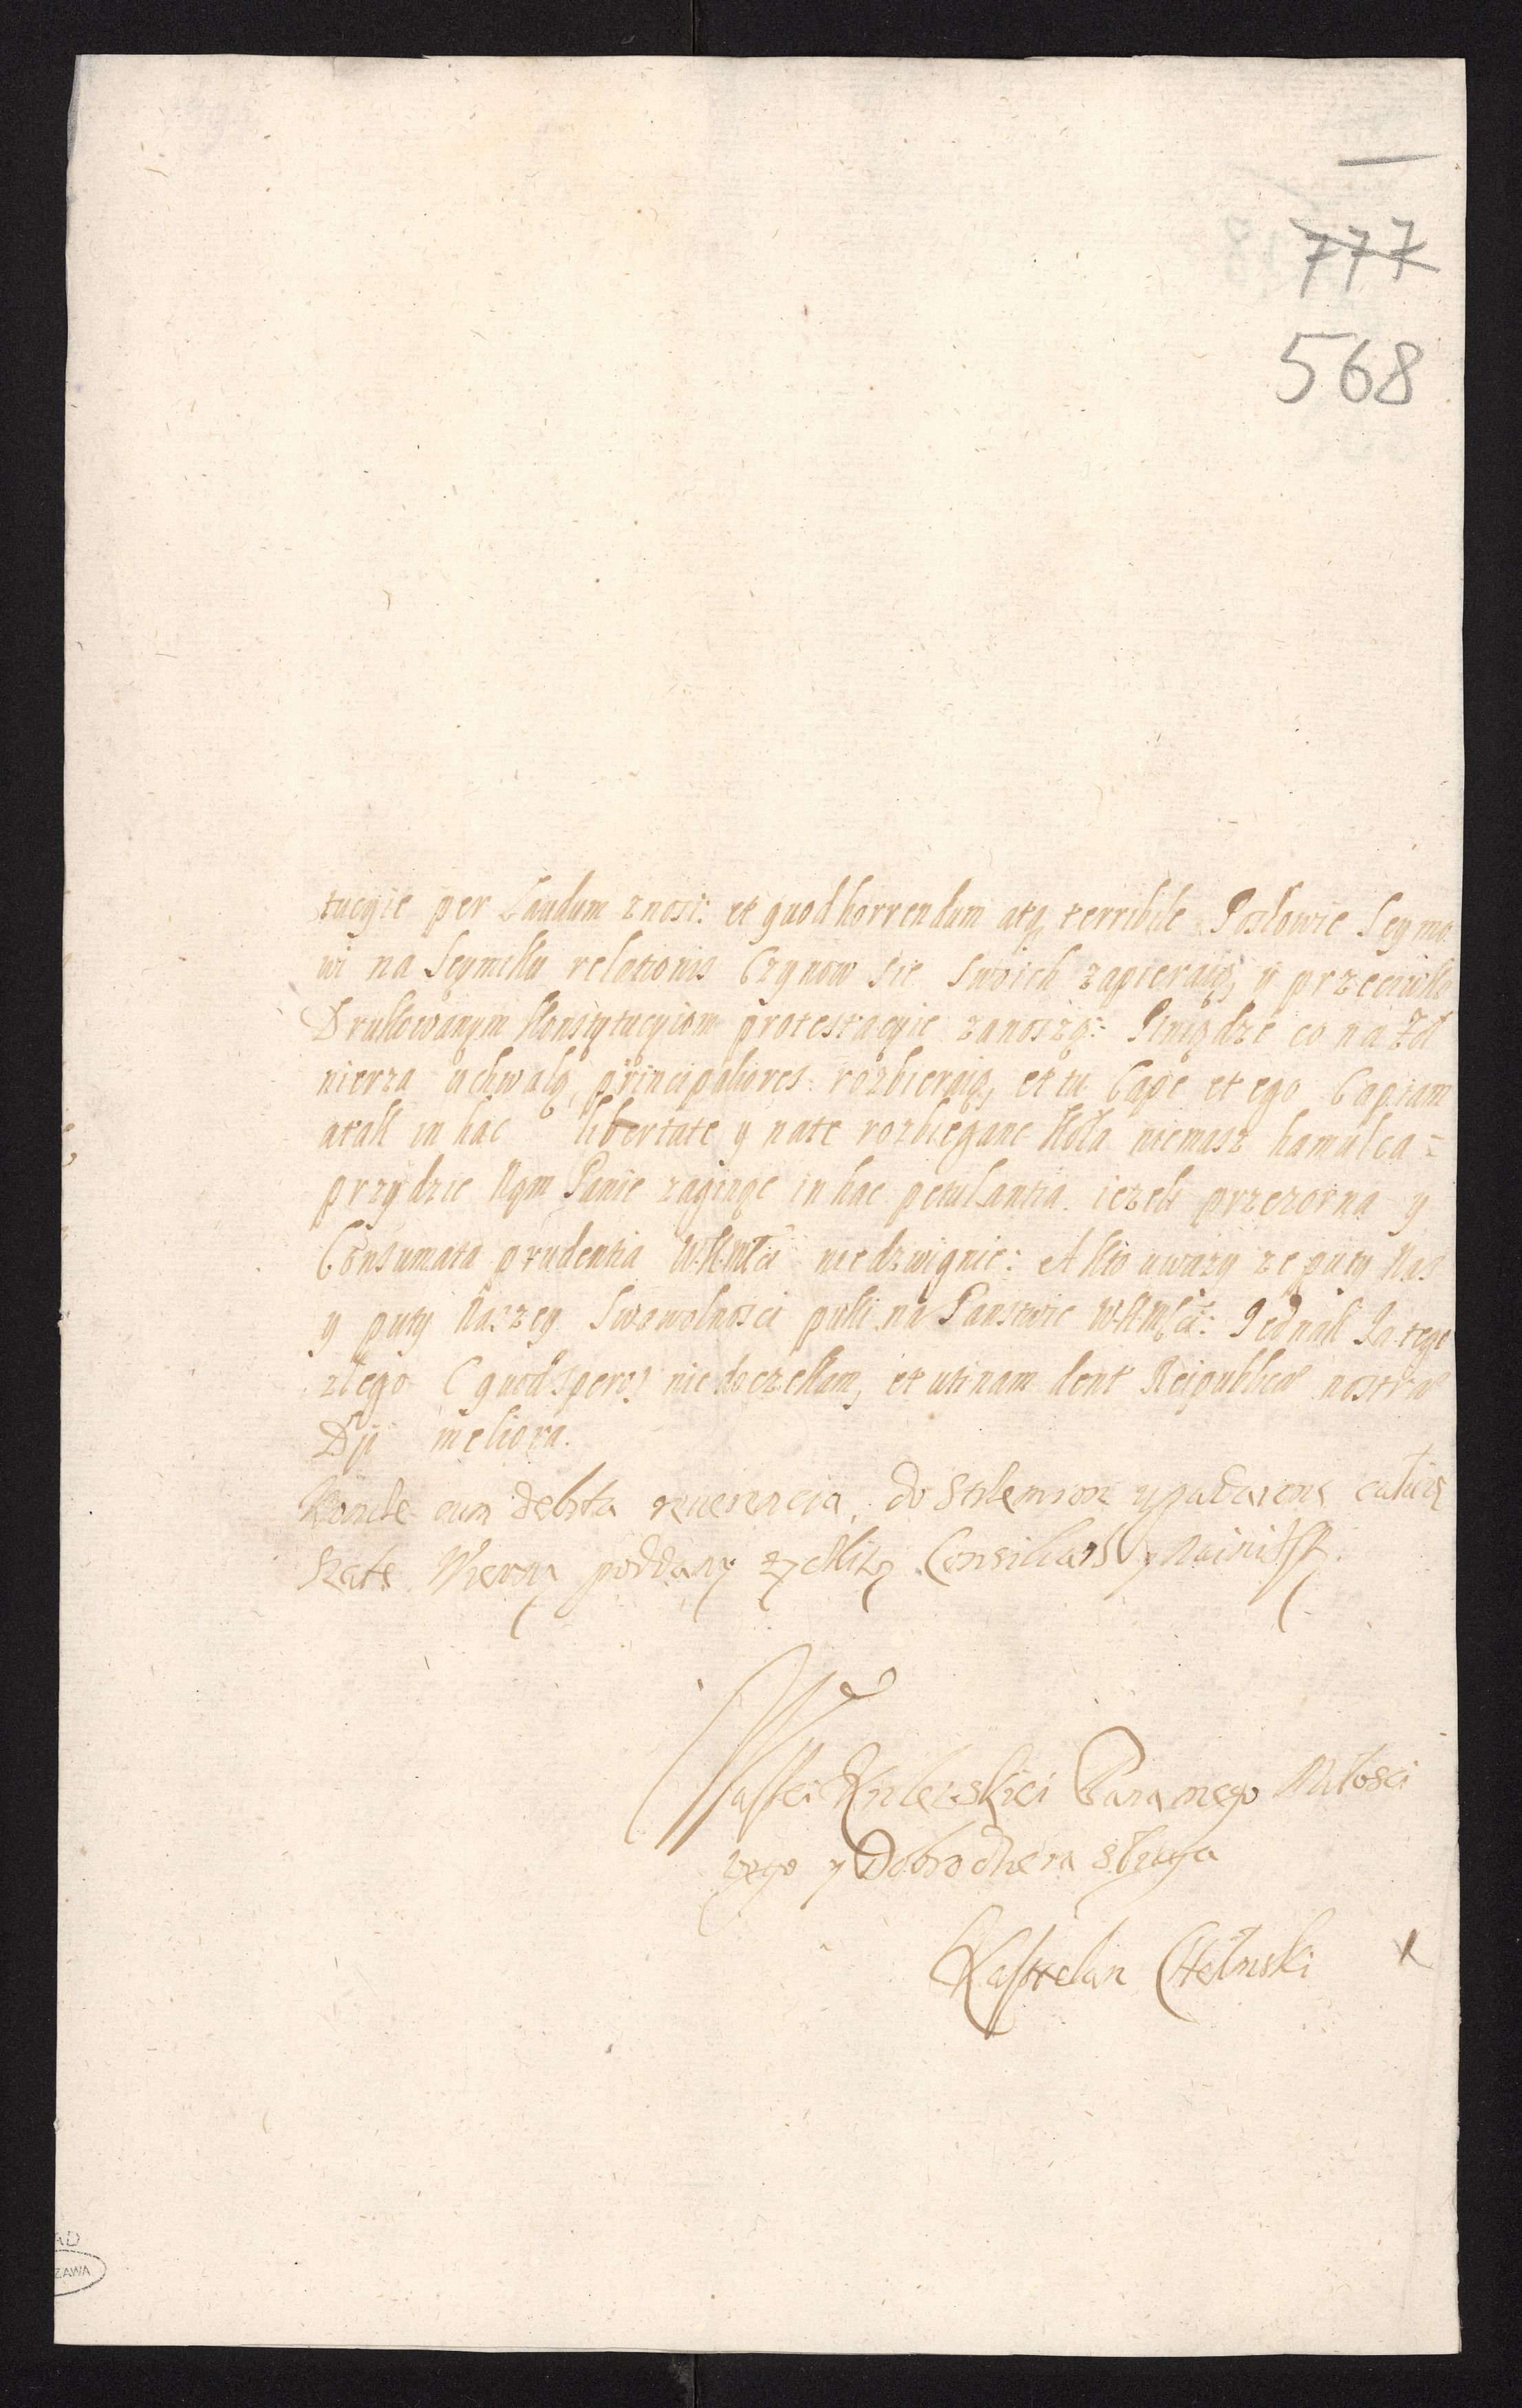 777
568
tucyie per Laudum znosi: et quod horrendum atq terribile Posłowie Seymo
wi na Seymiku relationis Czynow sie swoich zapieraią, y przeciwko
Drukowanym Konstytucyiom protestacyie zanoszą: Pieniądze co na Zoł
nierza uchwalą, principaliores rozbieraią, et tu Cape et ego Capiam
a tak in hac libertate y na te rozbiegane Koła niemasz hamulca:
przydzie Nąm Panie zaginąc in hac petulantia ieżeli przezorna y
Consumata prudentia W.K.Mści niedzwignie: A kto uwazy ze puty Nas
y puty Naszey Swowolnosci puki na Panstwie W.K.Mści: Jednak Ja tego
złego (quod spero) nie doczekam, et utinam dent Reipublicae nostrae
Dji meliora.
cum debita reuerencia, do
Wierny poddany zyczliwy Consiliarz y
Waszei Krolewskiei Pana mego Miłosci
wego y Dobrodzieia sługa
Kasztelan Chełmski
AD
ZAWA